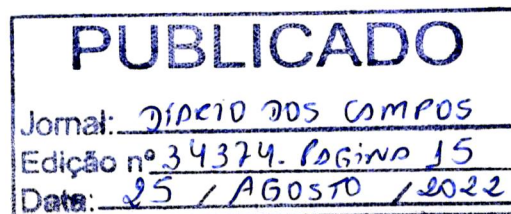 PUBLICADO
Jornal: DIÁRIO DOS CAMPOS
Edição nº 34374. PAGINA 15
Data: 25 / AGOSTO / 2022